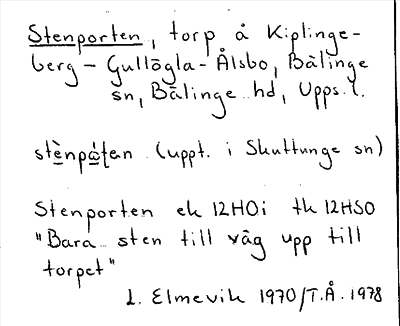 Stenporten, torp å Kiplinge-
berg - Gullögla - Ålsbo, Bälinge
sn, Bälinge hd, Upps. l.
stènpáṭen (uppt. i Skuttunge sn)
Stenporten ek 12H0i tk 12HSO
"Bara sten till väg upp till
torpet"
L. Elmevik 1970/T.Å. 1978